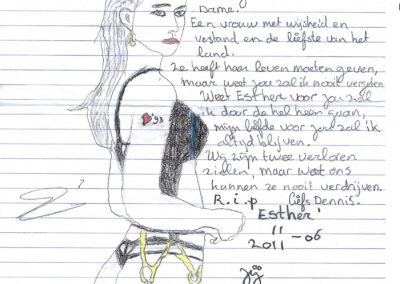 Dame!
Een vrouw met wijsheid en
verstand en de liefste van het
land.
Ze heeft haar leven moeten geven,
maar weet jou zal ik nooit vergeten
Weet Esther voor jou zal
ik door de hel heen gaan,
mijn liefde voor jou zal ik
altijd blijven.
Wij zijn twee verloren
zielen, maar weet ons
kunnen ze nooit verdrijven.
R.i.p liefs Dennis.
Esther'
11
2011-06
93